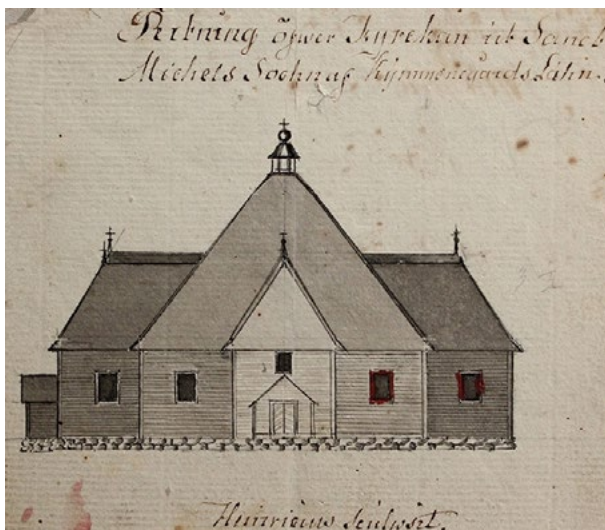 Ritning öfwer Kyrckan uti Sanct
Michels Sochn af Kÿmmenegårds Lähn.
Heinricius sculpsit.